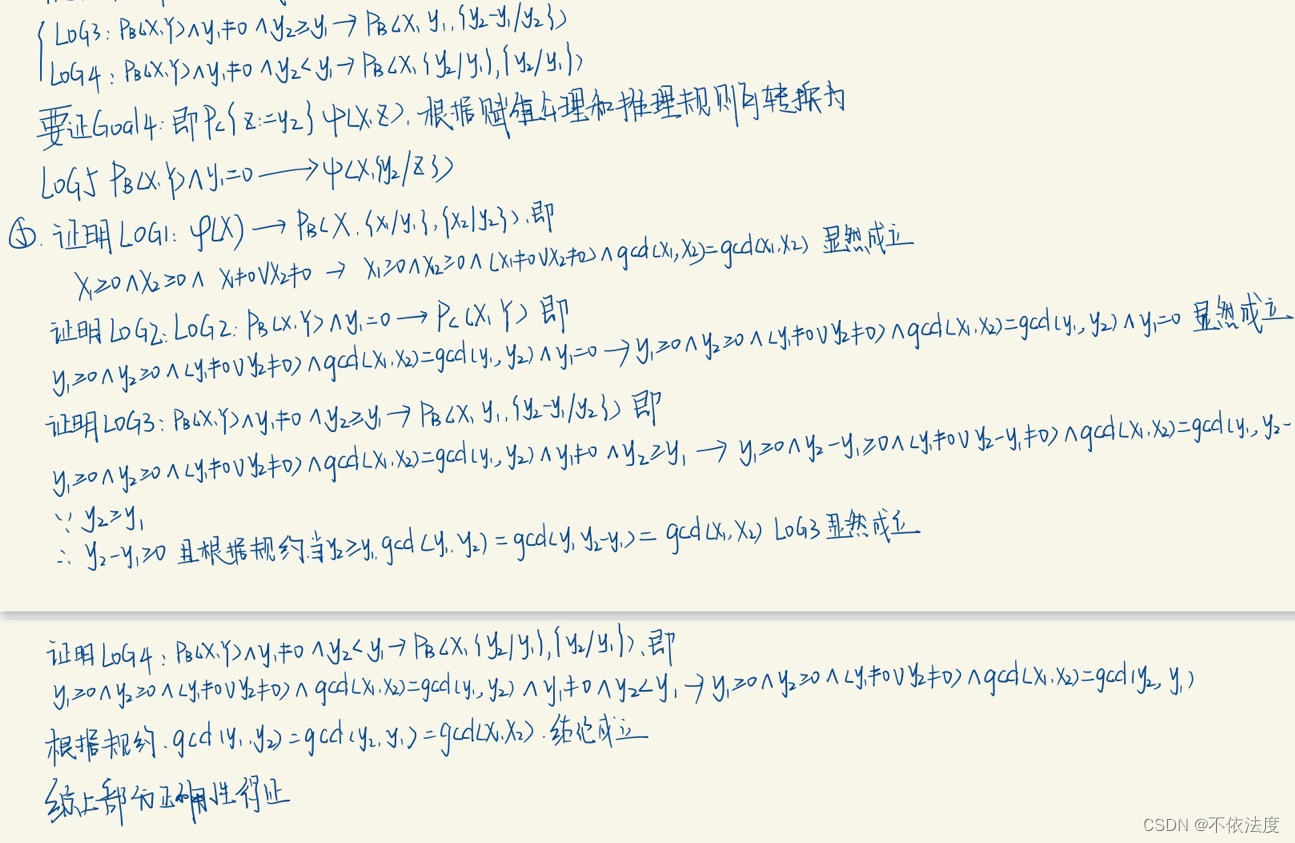 LOG3: PB(X,Y)∧y₁≠0∧y₂≥y₁→PB(X, y₁,{y₂-y₁/y₂})
LOG4: PB(X,Y)∧y₁≠0∧y₂<y₁→PB(X,{y₂/y₁},{y₂/y₁})
要证Goal4:即Pc{z:=y₂}ψ(X,Z).根据赋值公理和推理规则可转换为
LOG5 PB(X,Y)∧y₁=0→ψ(X,{y₂/Z})
⑤.证明LOG1: φ(X)→PB(X,{x₁/y₁},{x₂/y₂}).即
X₁≥0∧X₂≥0∧ X₁≠0∨X₂≠0 → X₁≥0∧X₂≥0∧(X₁≠0∨X₂≠0)∧gcd(X₁,X₂)=gcd(X₁,X₂) 显然成立
证明LOG2:LOG2:PB(X,Y)∧y₁=0→Pc(X,Y) 即
y₁≥0∧y₂≥0∧(y₁≠0∨y₂≠0)∧gcd(X₁,X₂)=gcd(y₁,y₂)∧y₁=0→y₁≥0∧y₂≥0∧(y₁≠0∨y₂≠0)∧gcd(X₁,X₂)=gcd(y₁,y₂)∧y₁=0 显然成立
证明LOG3:PB(X,Y)∧y₁≠0∧y₂≥y₁→PB(X, y₁,{y₂-y₁/y₂}) 即
y₁≥0∧y₂≥0∧(y₁≠0∨y₂≠0)∧gcd(X₁,X₂)=gcd(y₁,y₂)∧y₁≠0∧y₂≥y₁→y₁≥0∧y₂-y₁≥0∧(y₁≠0∨y₂-y₁≠0)∧gcd(X₁,X₂)=gcd(y₁,y₂-
∵ y₂≥y₁
∴ y₂-y₁≥0 且根据规约.当y₂≥y₁,gcd(y₁,y₂)=gcd(y₁,y₂-y₁)=gcd(X₁,X₂) LOG3显然成立
证明LOG4:PB(X,Y)∧y₁≠0∧y₂<y₁→PB(X,{y₂/y₁},{y₂/y₁}).即
y₁≥0∧y₂≥0∧(y₁≠0∨y₂≠0)∧gcd(X₁,X₂)=gcd(y₁,y₂)∧y₁≠0∧y₂<y₁→y₁≥0∧y₂≥0∧(y₁≠0∨y₂≠0)∧gcd(X₁,X₂)=gcd(y₂,y₁)
根据规约.gcd(y₁,y₂)=gcd(y₂,y₁)=gcd(X₁,X₂).结论成立
综上部分正确性得证
CSDN @不依法度